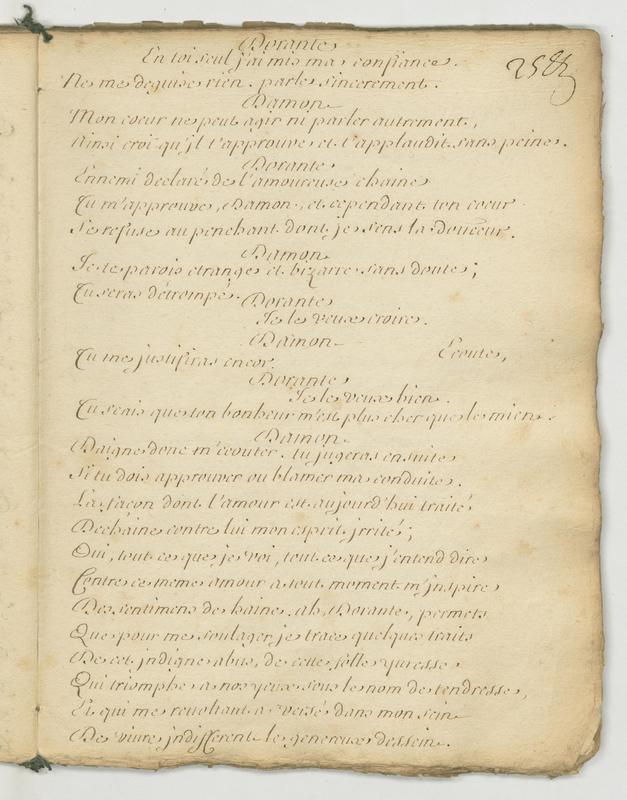 Dorante
En toi seul j'ai mis ma confiance.
Ne me deguise rien. parle sincerement.
Damon
Mon coeur ne peut agir ni parler autrement,
Ainsi croi qu'il t'approuve et t'applaudit sans peine.
Dorante
Ennemi declaré de l'amoureuse chaine
Tu m'approuve, Damon, et cependant ton coeur
Se refuse au penchant dont je sens la douceur.
Damon
Je te parois etrange et bizarre sans doute;
Tu seras détrompé.
Dorante
Je le veux croire.
Damon
Ecoute,
Tu me justifiras encor.
Dorante
Je le veux bien.
Tu scais que ton bonheur m'est plus cher que le mien.
Damon
Daigne donc m'ecouter. tu jugeras ensuite
Si tu dois approuver ou blamer ma conduite.
La façon dont l'amour est aujourd'hui traité
Dechaine contre lui mon esprit jrrité;
Oui, tout ce que je voi, tout ce que j'entend dire
Contre ce meme amour a tout moment m'jnspire
Des sentimens de haine. ah, Dorante, permets
Que pour me soulager je trace quelques traits
De cet jndigne abus, de cette folle yvresse
Qui triomphe a nos yeux sous le nom de tendresse,
Et qui me revoltant a versé dans mon sein
De vivre jndifferent le genereux dessein.